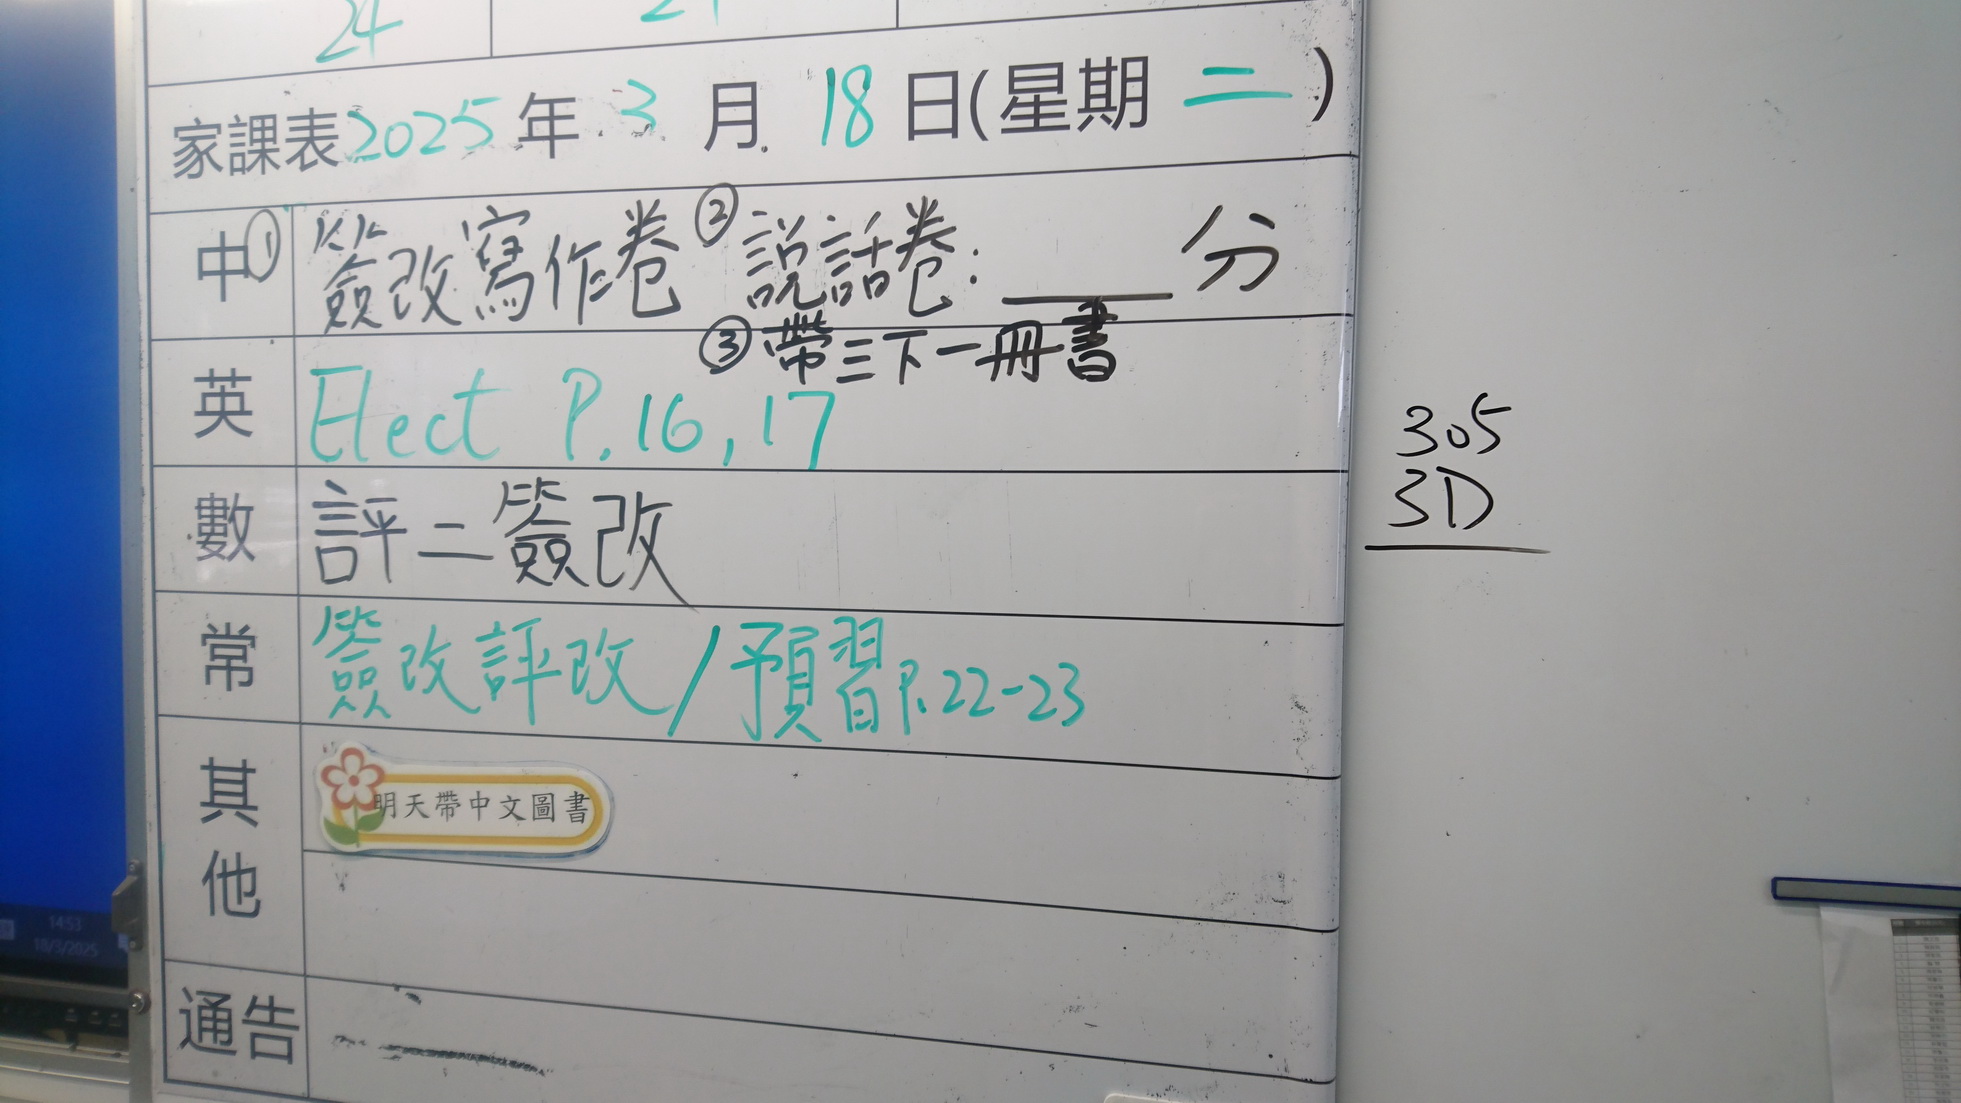 24
家課表2025年3月18日(星期二)
中 ①簽改寫作卷 ②說話卷:____分
③帶三下一冊書
英 Elect P.16,17
數 評二簽改
常 簽改評改/預習P.22-23
其他 明天帶中文圖書
通告
305
3D
14:53
18/3/2025